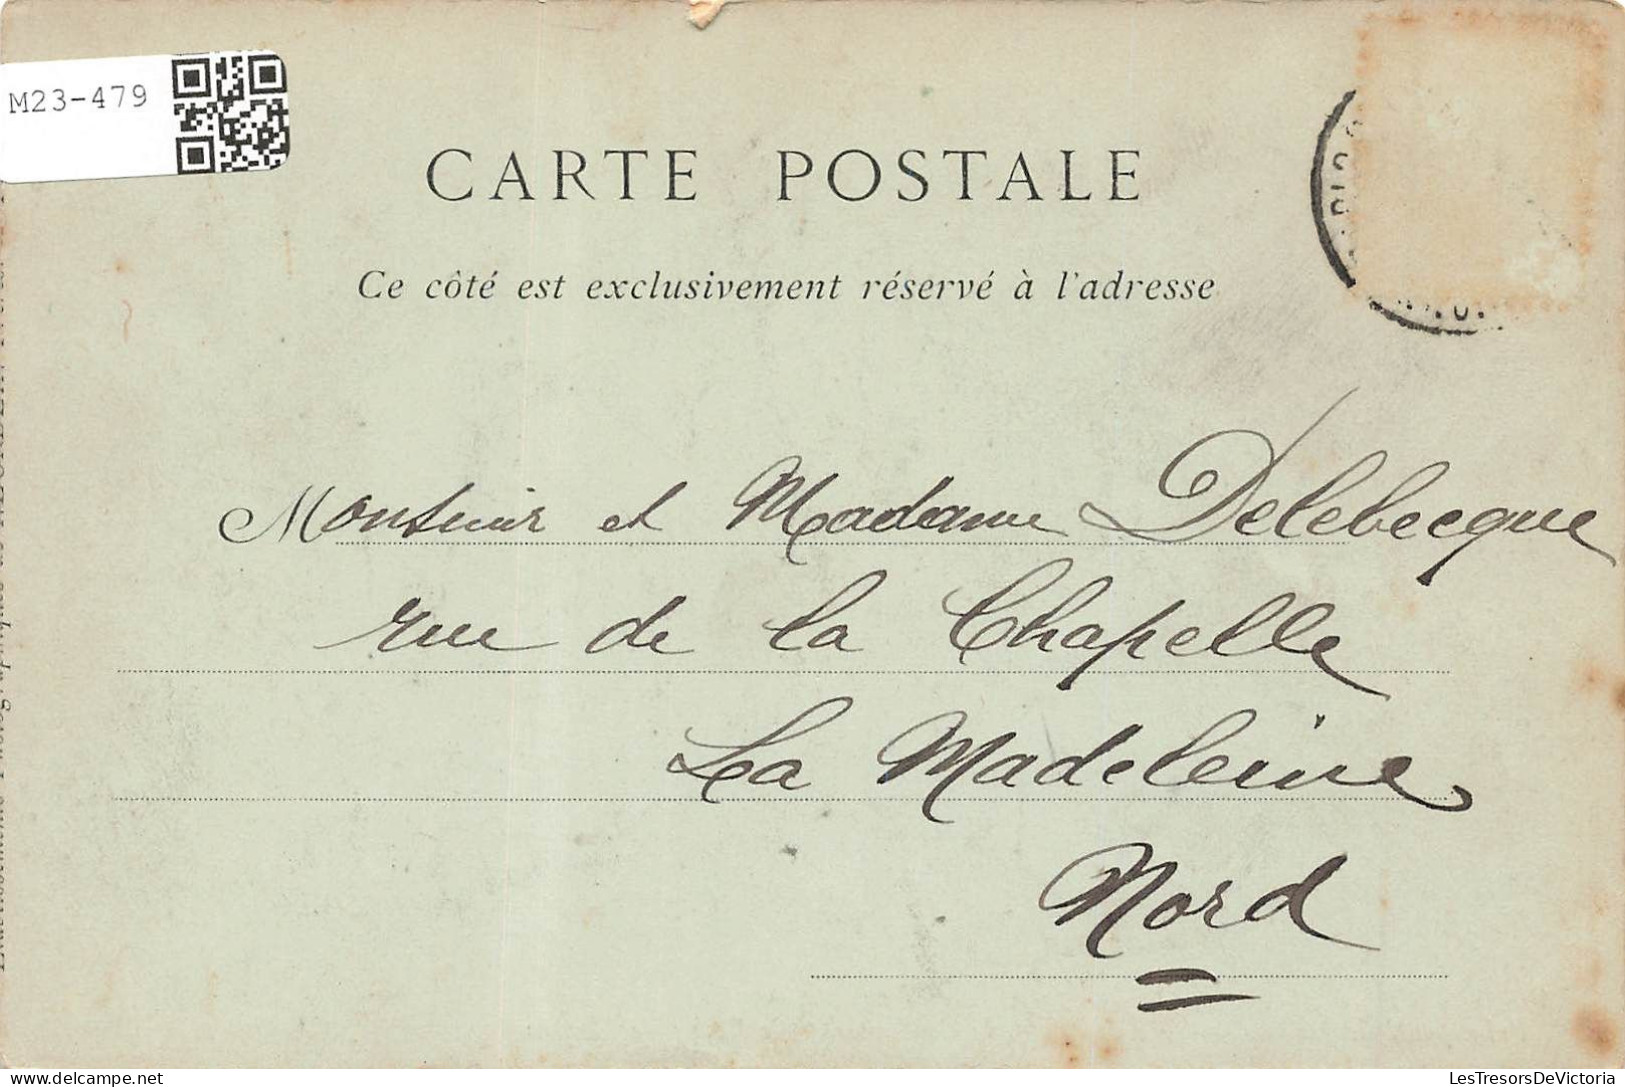 M23-479
CARTE POSTALE
Ce côté est exclusivement réservé à l'adresse
Monsieur et Madame Delebecque
rue de la Chapelle
La Madeleine
Nord
LesTresorsDeVictoria - delcampe.net